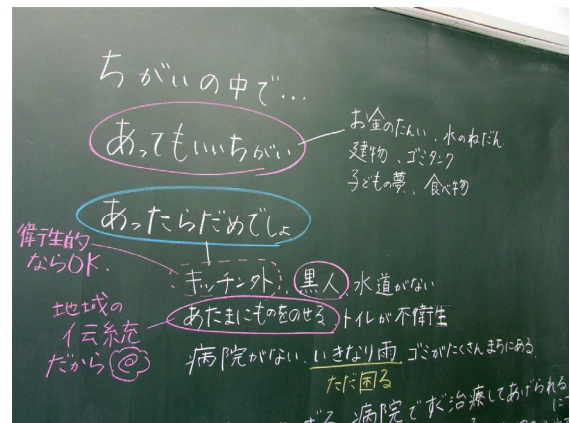 ちがいの中で…
あってもいいちがい
お金のたんい、水のねだん
建物、ゴミタンク
子どもの夢、食べ物
あったらだめでしょ
衛生的
ならOK.
キッチン外、黒人、水道がない
地域の
伝統
だから◎
あたまにものをのせる、トイレが不衛生
病院がない、いきなり雨 ゴミがたくさんまちにある。
ただ困る
病院ですぐ治療してあげられる